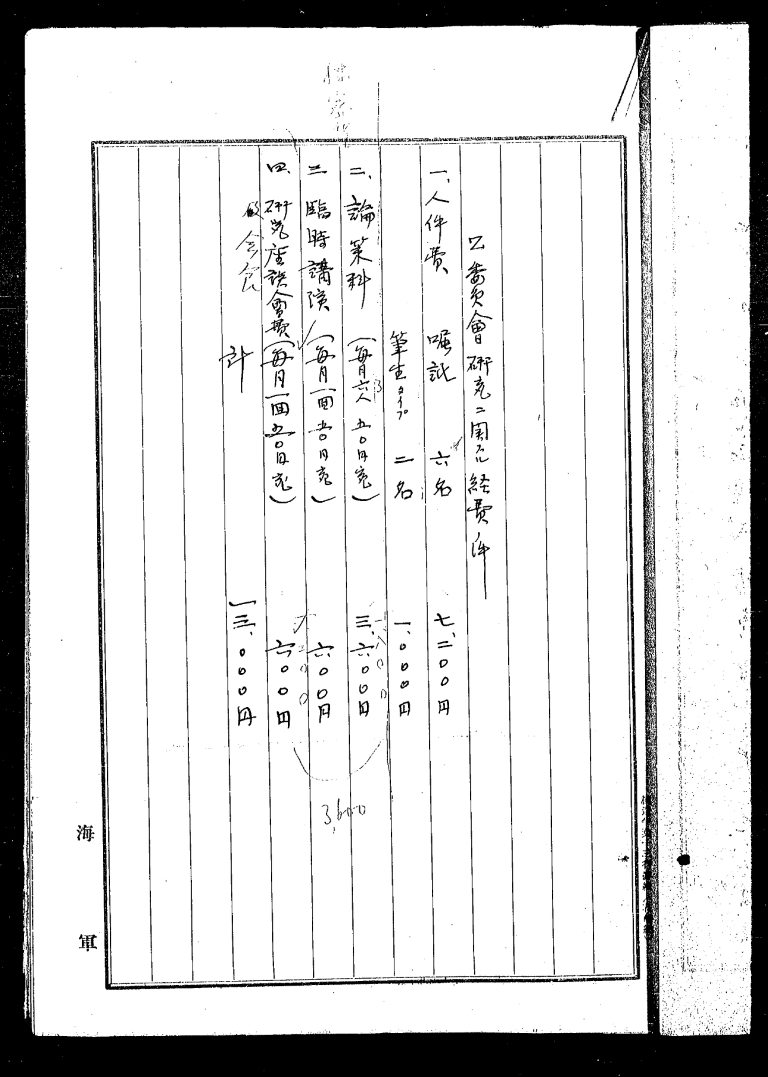 乙委員會研究ニ関スル経費ノ件
一、人件費 嘱託 六名 七、二〇〇円
筆生タイプ 二名 一、〇〇〇円
二、論策料(毎月六人 五〇円宛) 三、六〇〇円
三 臨時講演(毎月一回 五〇円宛) 六〇〇円
四、研究座談會費(毎月一回 五〇円宛) 六〇〇円
会食
計 一三、〇〇〇円
3,600
海軍